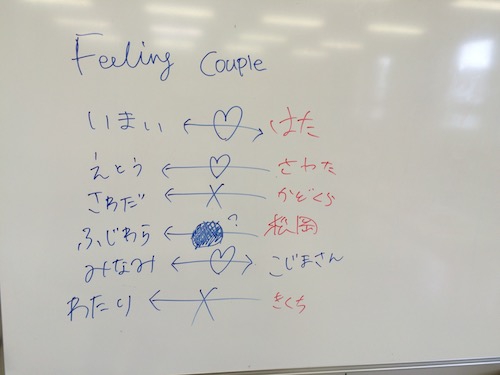 Feeling Couple
いまい ←♡→ はた
えとう ←♡ さわた
さわだ ←× かぞくら
ふじわら ←●? 松岡
みなみ ←♡→ こじまさん
わたり ←× きくち